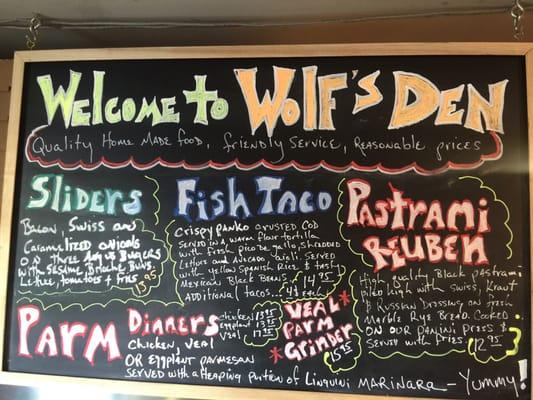 Welcome to Wolf's Den
Quality Home Made food, friendly Service, Reasonable prices
Sliders
Bacon, Swiss and
Caramelized onions
on three Angus Burgers
with Sesame Brioche Buns.
Lettuce tomatoes & Fries
13.95
Fish Taco
Crispy Panko crusted Cod
Served in a warm flour tortilla
with fresh Pico de gallo, shredded
Lettuce and Avocado aioli. Served
with yellow Spanish Rice &
Mexican Black Beans. 14.95
Additional tacos... each
Pastrami
Reuben
High quality Black pastrami
piled high with Swiss, Kraut
& Russian Dressing on fresh
Marble Rye Bread. Cooked
on our panini press &
Served with fries. 12.95
Parm Dinners
Chicken, Veal
or Eggplant parmesan
Served with a Heaping portion of Linguini Marinara - Yummy!
chicken 13.95
eggplant 13.95
Veal 17.95
Veal
Parm
Grinder
15.95